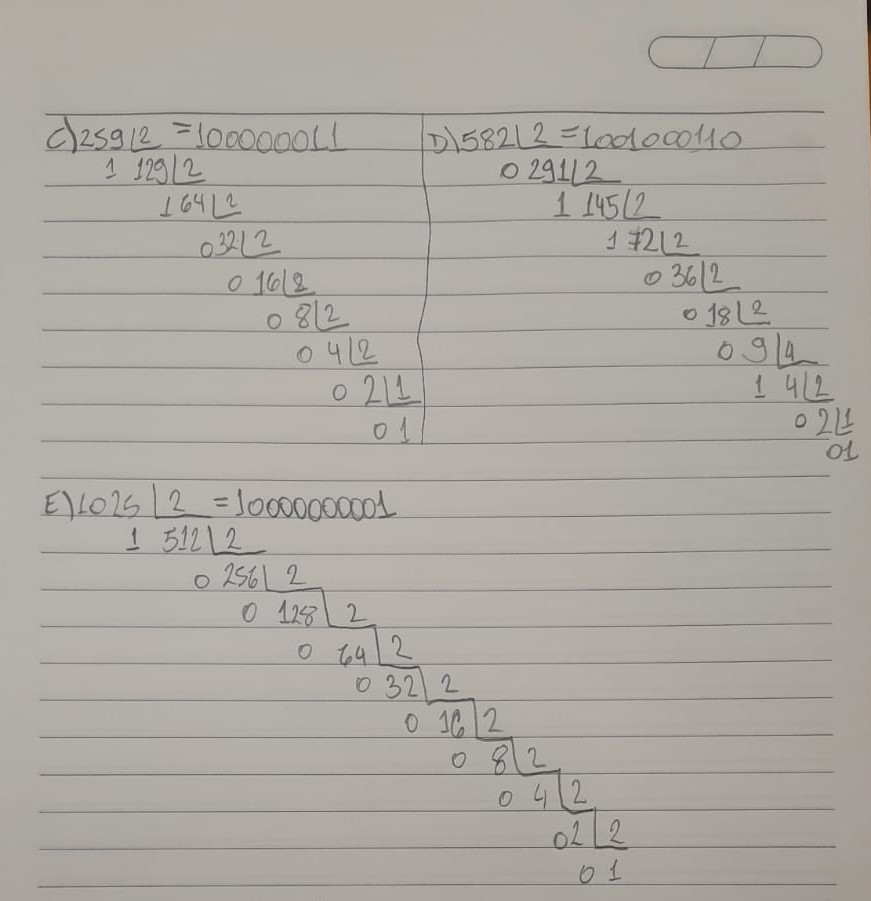 C) 259 2 = 100000011
1 129 2
1 64 2
0 32 2
0 16 2
0 8 2
0 4 2
0 2 1
0 1
D) 582 2 = 1001000110
0 291 2
1 145 2
1 72 2
0 36 2
0 18 2
0 9 4
1 4 2
0 2 1
0 1
E) 1025 2 = 10000000001
1 512 2
0 256 2
0 128 2
0 64 2
0 32 2
0 16 2
0 8 2
0 4 2
0 2 2
0 1